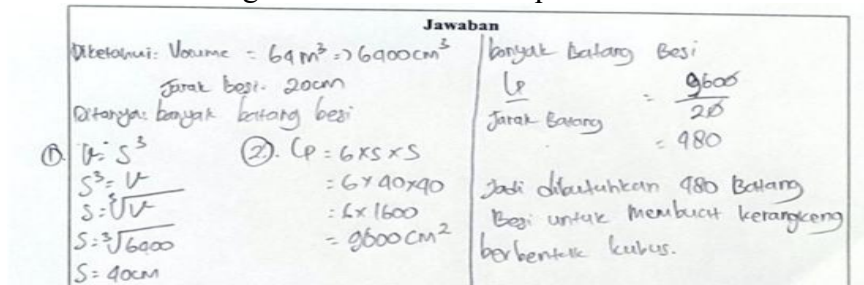 Jawaban
Diketahui: Volume = 64 m³ => 6400 cm³
Jarak besi. 20cm
Ditanya: banyak batang besi
① V = S³
S³ = V
S = ³√V
S = ³√6400
S = 40cm
②. Lp = 6 x S x S
= 6 x 40 x 40
= 6 x 1600
= 9600 cm²
banyak Batang Besi
Lp / Jarak Batang = 9600 / 20
= 480
Jadi dibutuhkan 480 Batang
Besi untuk membuat kerangkeng
berbentuk kubus.